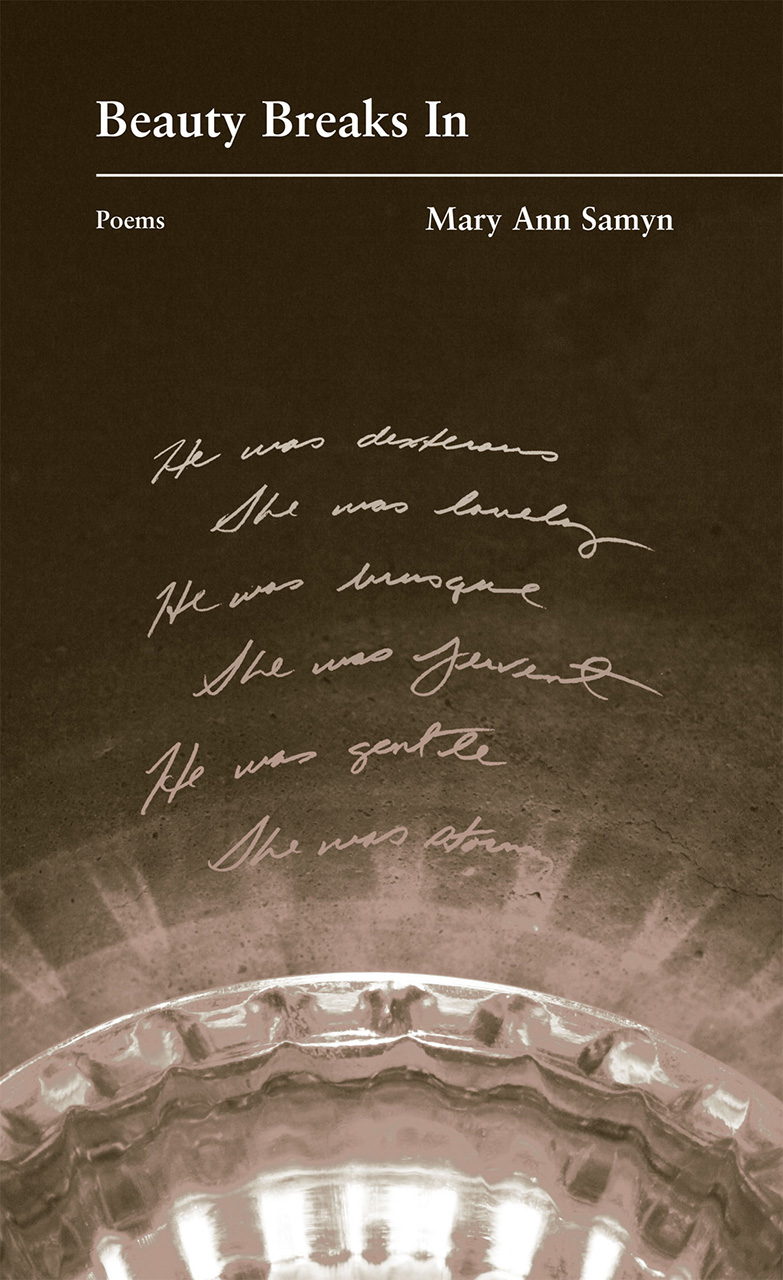 Beauty Breaks In
Poems
Mary Ann Samyn
He was dexterous
She was lovely
He was brusque
She was fervent
He was gentle
She was stormy